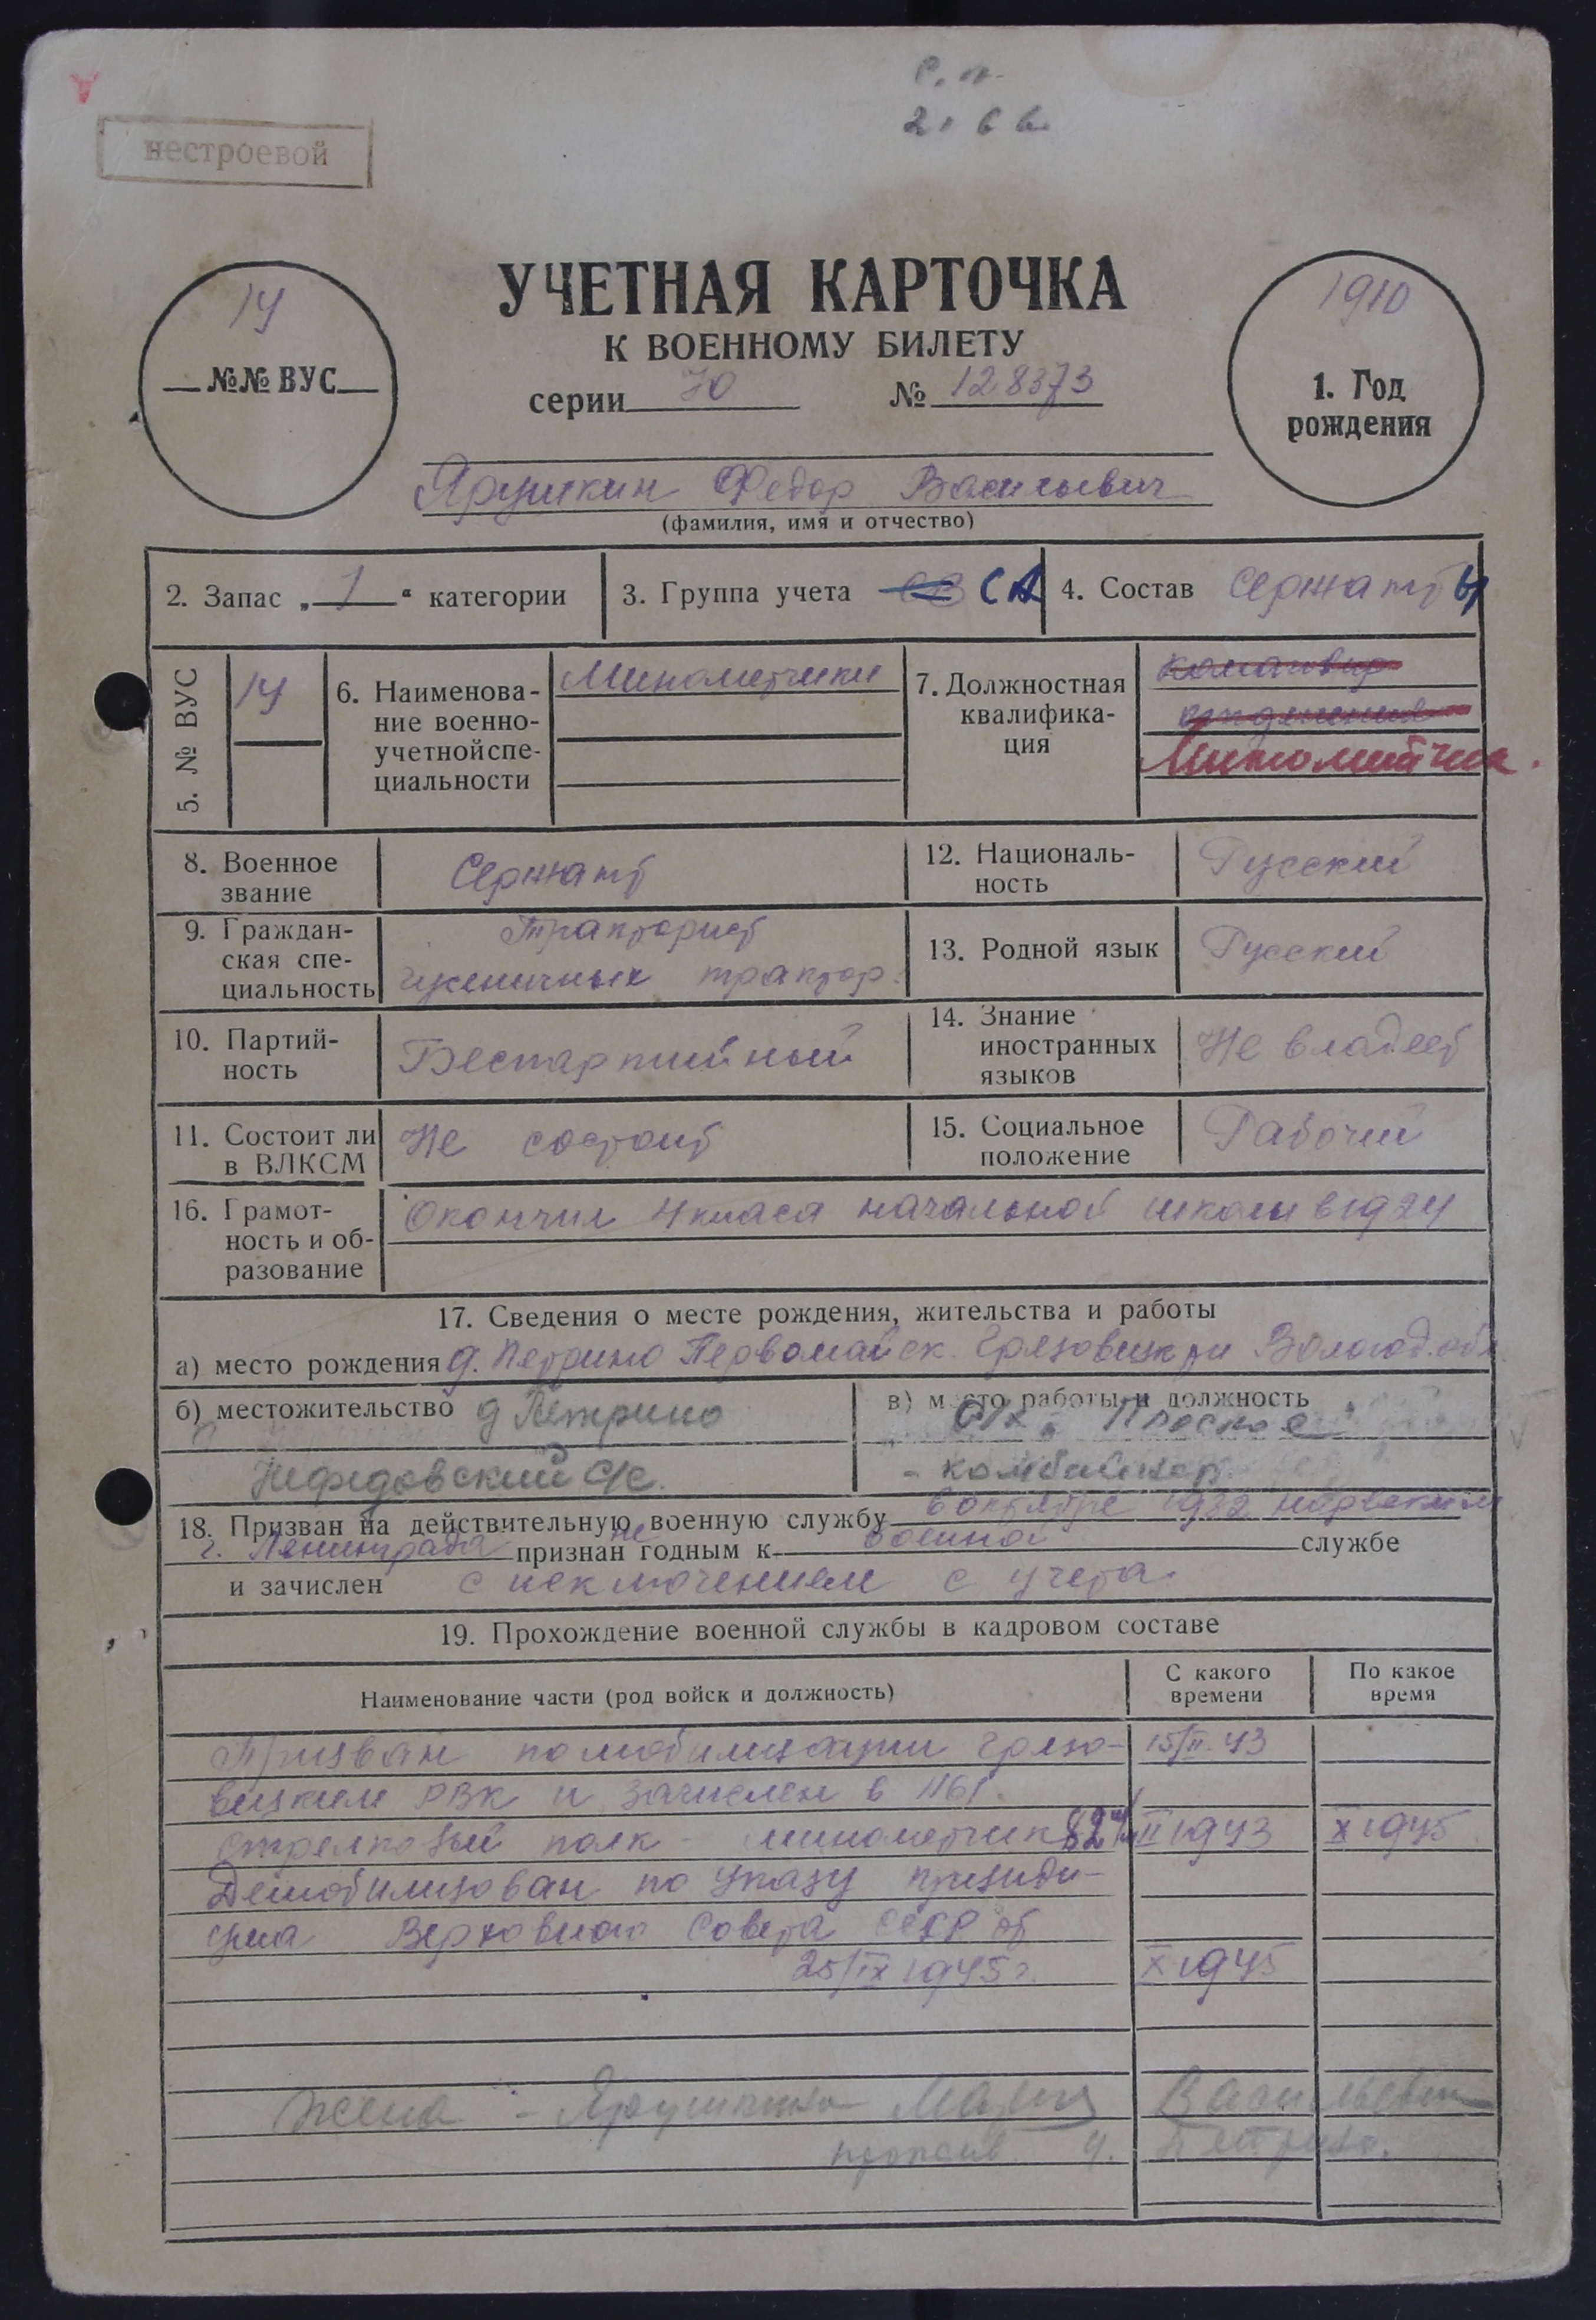 нестроевой
УЧЕТНАЯ КАРТОЧКА
К ВОЕННОМУ БИЛЕТУ
14
№№ ВУС
серии 70 № 128373
1910
1. Год
рождения
Ярушкин Федор Васильевич
(фамилия, имя и отчество)
2. Запас „1“ категории
3. Группа учета СА
4. Состав Сержанты
5. № ВУС 14
6. Наименова-
ние военно-
учетной спе-
циальности
Минометчики
7. Должностная
квалифика-
ция
Минометчик.
8. Военное
звание
Сержант
12. Националь-
ность
Русский
9. Граждан-
ская спе-
циальность
Тракторист
гусеничных трактор.
13. Родной язык
Русский
10. Партий-
ность
Беспартийный
14. Знание
иностранных
языков
Не владеет
11. Состоит ли
в ВЛКСМ
Не состоит
15. Социальное
положение
Рабочий
16. Грамот-
ность и об-
разование
Окончил 4 класа начальной школы в 1924
17. Сведения о месте рождения, жительства и работы
а) место рождения д. Петрино Первомайск. Грязовецк р-н Вологод. обл.
б) местожительство д Петрино
Нефедовский с/с.
в) место работы и должность
Плоское
- комбайнер
18. Призван на действительную военную службу в октябре 1932 нарвским
г. Ленинграда признан не годным к военной службе
и зачислен с исключением с учета.
19. Прохождение военной службы в кадровом составе
Наименование части (род войск и должность)
С какого
времени
По какое
время
Призван по мобилизации Грязо- 15/II.43
вецким РВК и зачислен в 1161.
стрелковый полк - минометчик 82 м/м II 1943 X 1945
Демобилизован по Указу президи-
ума Верховного Совета СССР от
25/IX 1945 г. X 1945
Жена - Ярушкина Мария Васильевна
прожив. д. Петрино.